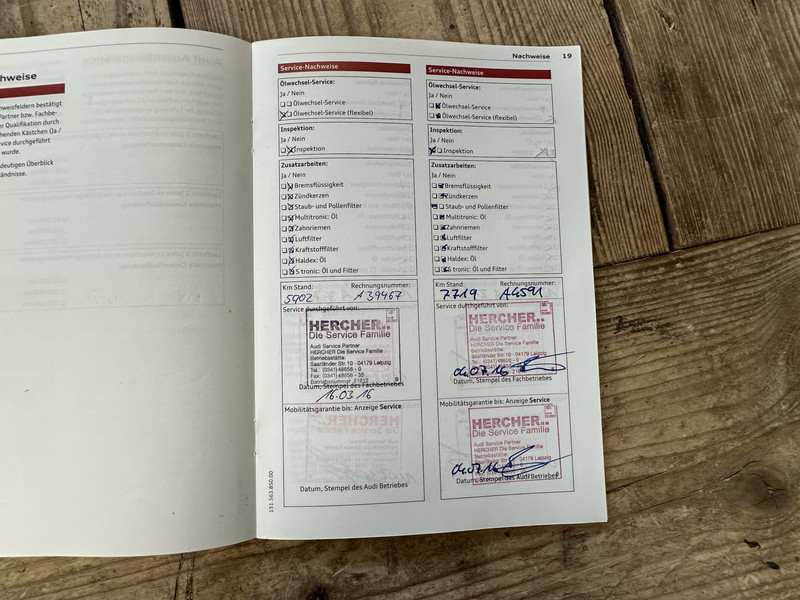 hweise
weisfeldern bestätigt
Partner bzw. Fachbe-
er Qualifikation durch
henden Kästchen (Ja /
vice durchgeführt
wurde.
deutigen Überblick
ändnisse.
Nachweise 19
Service-Nachweise
Ölwechsel-Service:
Ja / Nein
Ölwechsel-Service
Ölwechsel-Service (flexibel)
Inspektion:
Ja / Nein
Inspektion
Zusatzarbeiten:
Ja / Nein
Bremsflüssigkeit
Zündkerzen
Staub- und Pollenfilter
Multitronic: Öl
Zahnriemen
Luftfilter
Kraftstofffilter
Haldex: Öl
S tronic: Öl und Filter
Km Stand: Rechnungsnummer:
5902 A 39467
Service durchgeführt von:
HERCHER..
Die Service Familie
Audi Service Partner
HERCHER Die Service Familie
Betriebsstätte:
Saarländer Str. 10 · 04179 Leipzig
Tel.: (0341) 48656 - 0
Fax: (0341) 48656 - 35
Betriebsnummer
Datum, Stempel des Fachbetriebes
16.03.16
Mobilitätsgarantie bis: Anzeige Service
Datum, Stempel des Audi Betriebes
151.563.850.00
Service-Nachweise
Ölwechsel-Service:
Ja / Nein
Ölwechsel-Service
Ölwechsel-Service (flexibel)
Inspektion:
Ja / Nein
Inspektion
Zusatzarbeiten:
Ja / Nein
Bremsflüssigkeit
Zündkerzen
Staub- und Pollenfilter
Multitronic: Öl
Zahnriemen
Luftfilter
Kraftstofffilter
Haldex: Öl
S tronic: Öl und Filter
Km Stand: Rechnungsnummer:
7719 A4591
Service durchgeführt von:
HERCHER..
Die Service Familie
Audi Service Partner
HERCHER Die Service Familie
Betriebsstätte:
Saarländer Str. 10 · 04179 Leipzig
Tel.: (0341) 48656 - 0
04.07.16
Datum, Stempel des Fachbetriebes
Mobilitätsgarantie bis: Anzeige Service
HERCHER..
Die Service Familie
Audi Service Partner
HERCHER Die Service Familie
Betriebsstätte:
Saarländer Str. 10 · 04179 Leipzig
04.07.16
Datum, Stempel des Audi Betriebes